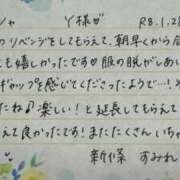 シャ Y様 R8.1.2
のリベンジをしてもらえて、朝早くから会
も嬉しかったです 服の脱がしあい
ギャップを感じてくださったようで…!
たね♪楽しい!と延長してもらえ
えて良かったです!またたくさんいちゃ
新條 すみれ